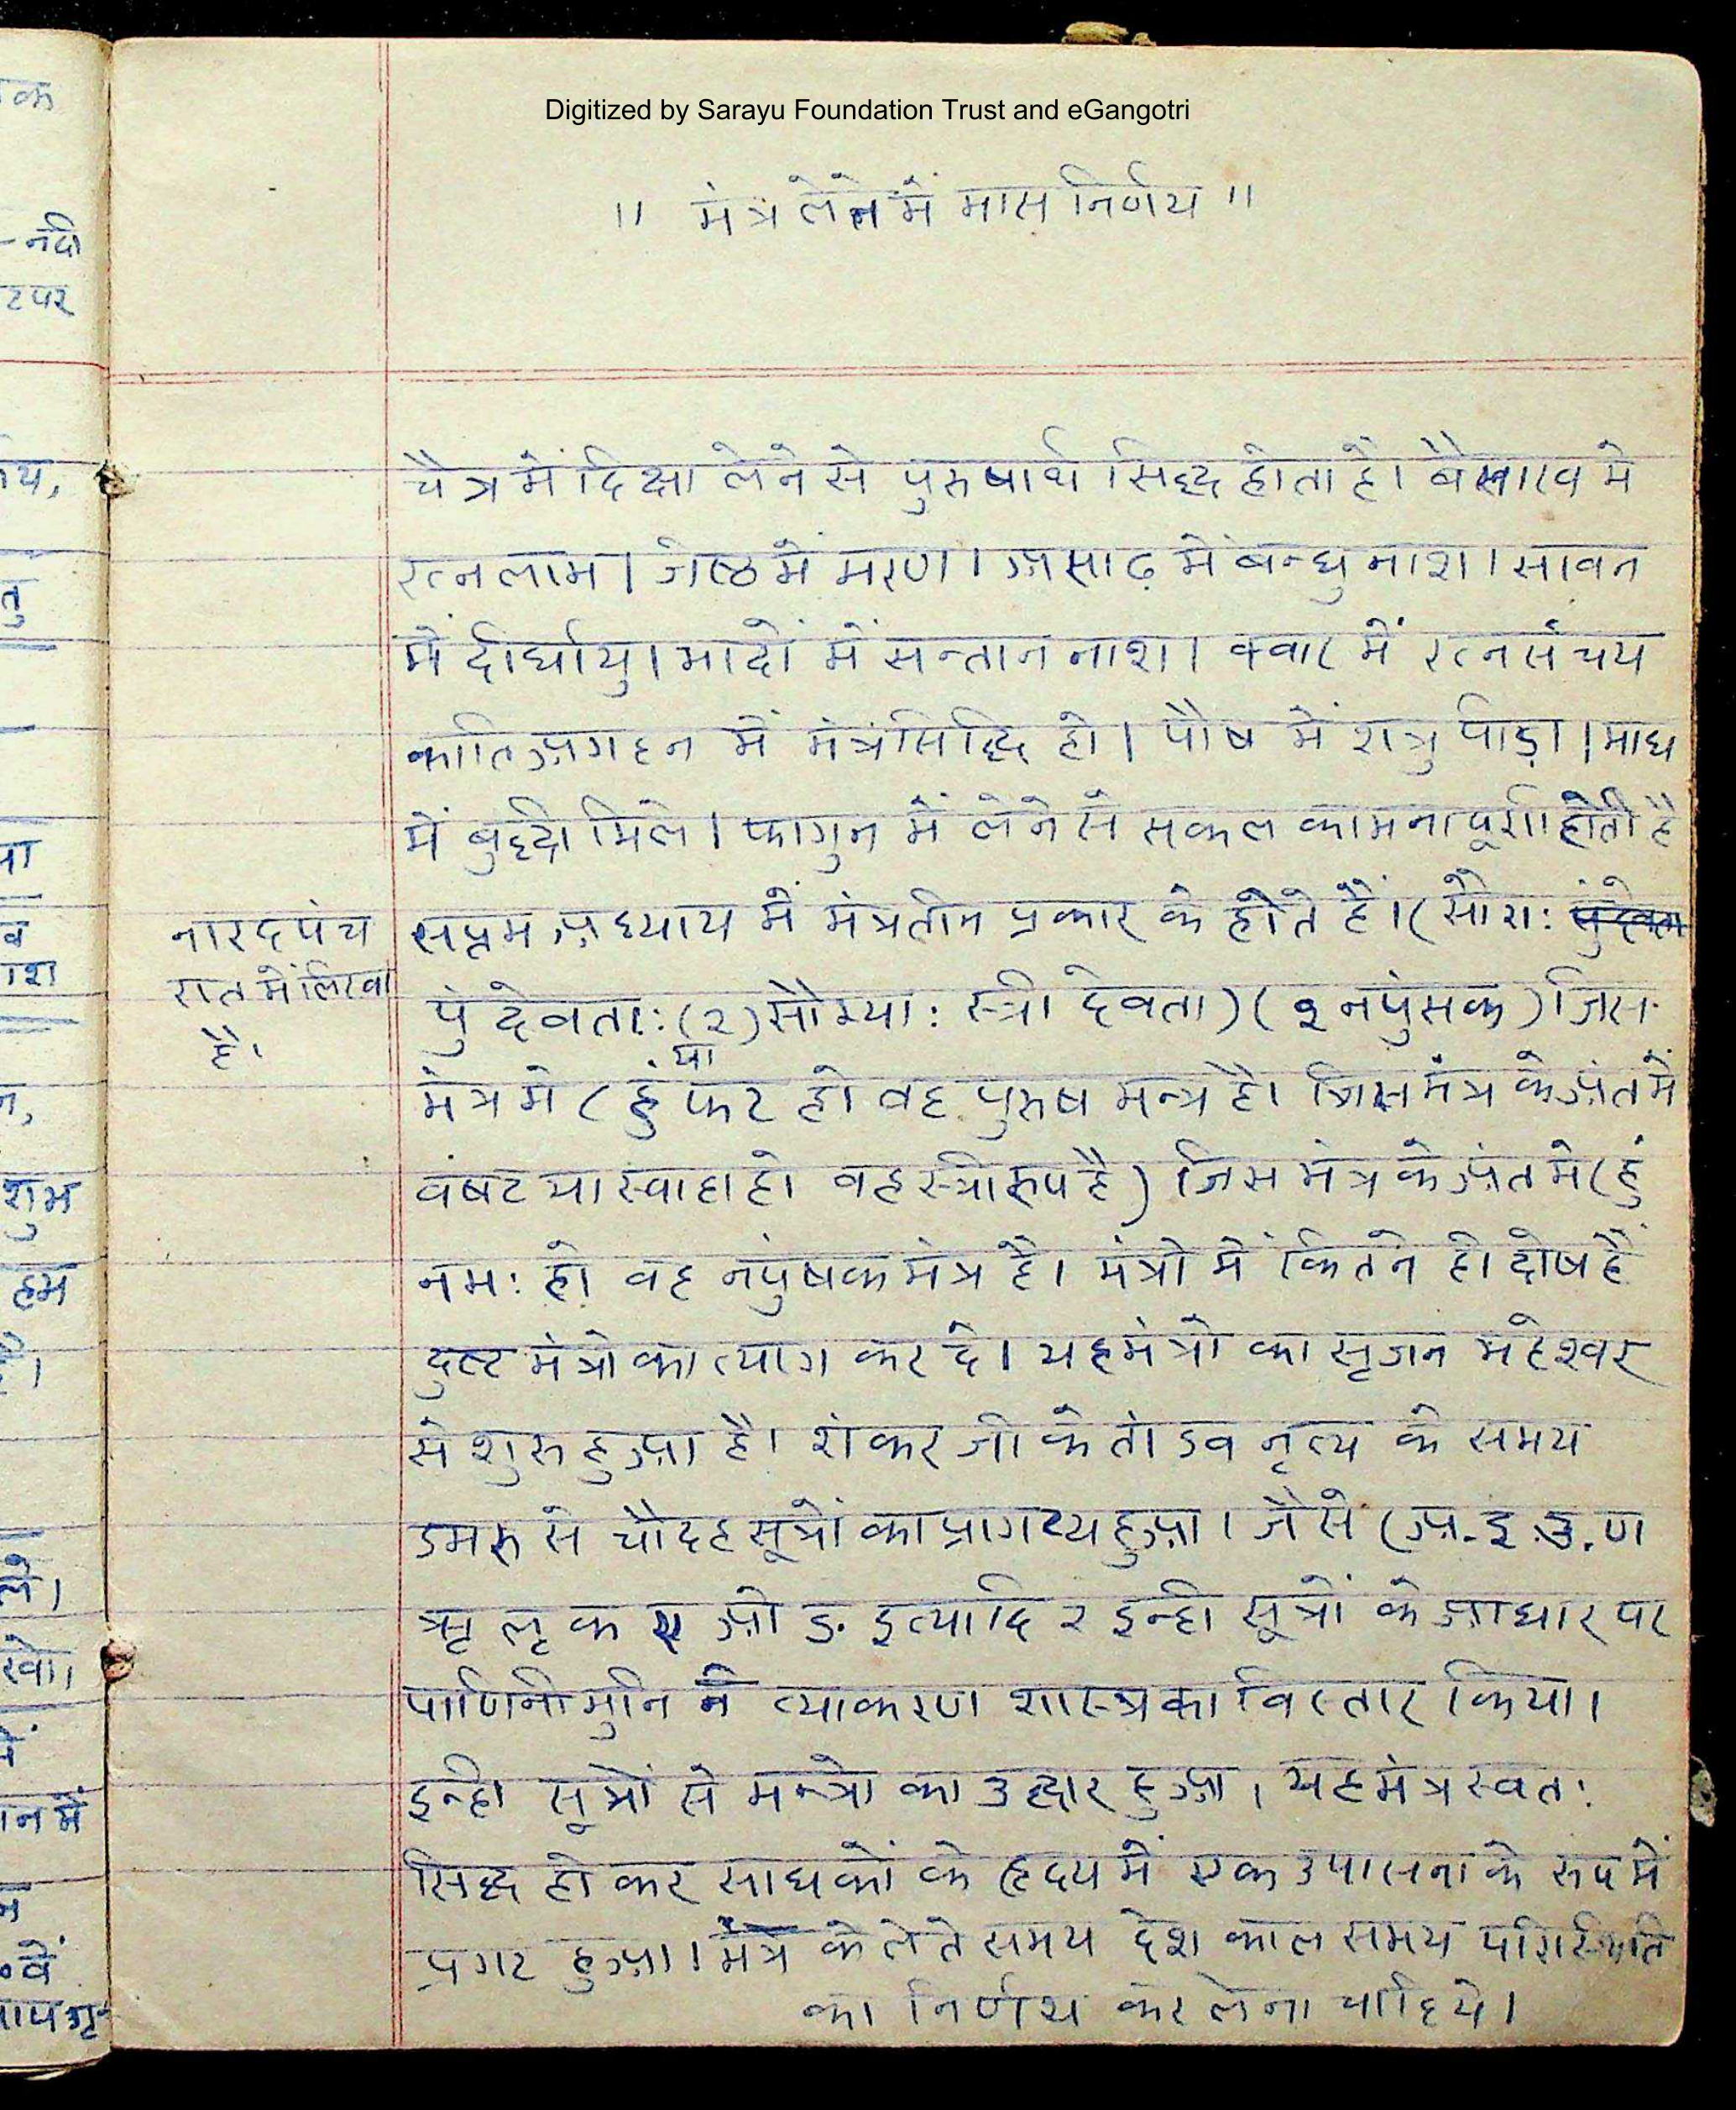 Digitized by Sarayu Foundation Trust and eGangotri
॥ मंत्र लेने में मास निर्णय ॥
चैत्र में दिक्षा लेने से पुरुषार्थ सिद्ध होता है। वैसाख मे
रत्न लाभ। जेष्ठ में मरण। असाढ़ में बन्धु नाश। सावन
में दीर्घायु। भादों में सन्तान नाश। क्वार में रत्न संचय
काति अगहन में मंत्र सिद्धि हो। पौष में शत्रु पीड़ा। माघ
में बुद्धी मिले। फागुन में लेने से सकल कामना पूर्ण होती है
नारद पंच
रात में लिखा
है।
सप्तम अध्याय में मंत्र तीन प्रकार के होते हैं। (सौरा:
पुं देवता: (२) सौम्या: स्त्री देवता) (३ नपुंसक) जिस
मंत्र मे (हुं या फट हो वह पुरुष मन्त्र है। जिस मंत्र के अंत में
वंषट या स्वाहा हो वह स्त्री रुप है) जिस मंत्र के अंत मे (हुं
नम: हो वह नपुंषक मंत्र है। मंत्रो में कितने ही दोष हैं
दुष्ट मंत्रो का त्याग कर दे। यह मंत्रो का सृजन महेश्वर
से शुरु हुआ है। शंकर जी के तांडव नृत्य के समय
डमरु से चौदह सूत्रों का प्रागट्य हुआ। जैसे (अ.इ.उ.ण
ऋ लृ क ए ओ ङ. इत्यादि २ इन्ही सूत्रों के आधार पर
पाणिनी मुनि ने व्याकरण शास्त्र का विस्तार किया।
इन्ही सूत्रों से मन्त्रो का उद्धार हुआ। यह मंत्र स्वत:
सिद्ध हो कर साधकों के हृदय में एक उपासना के रुप में
प्रगट हुआ। मंत्र के लेते समय देश काल समय परिस्थिति
का निर्णय कर लेना चाहिये।